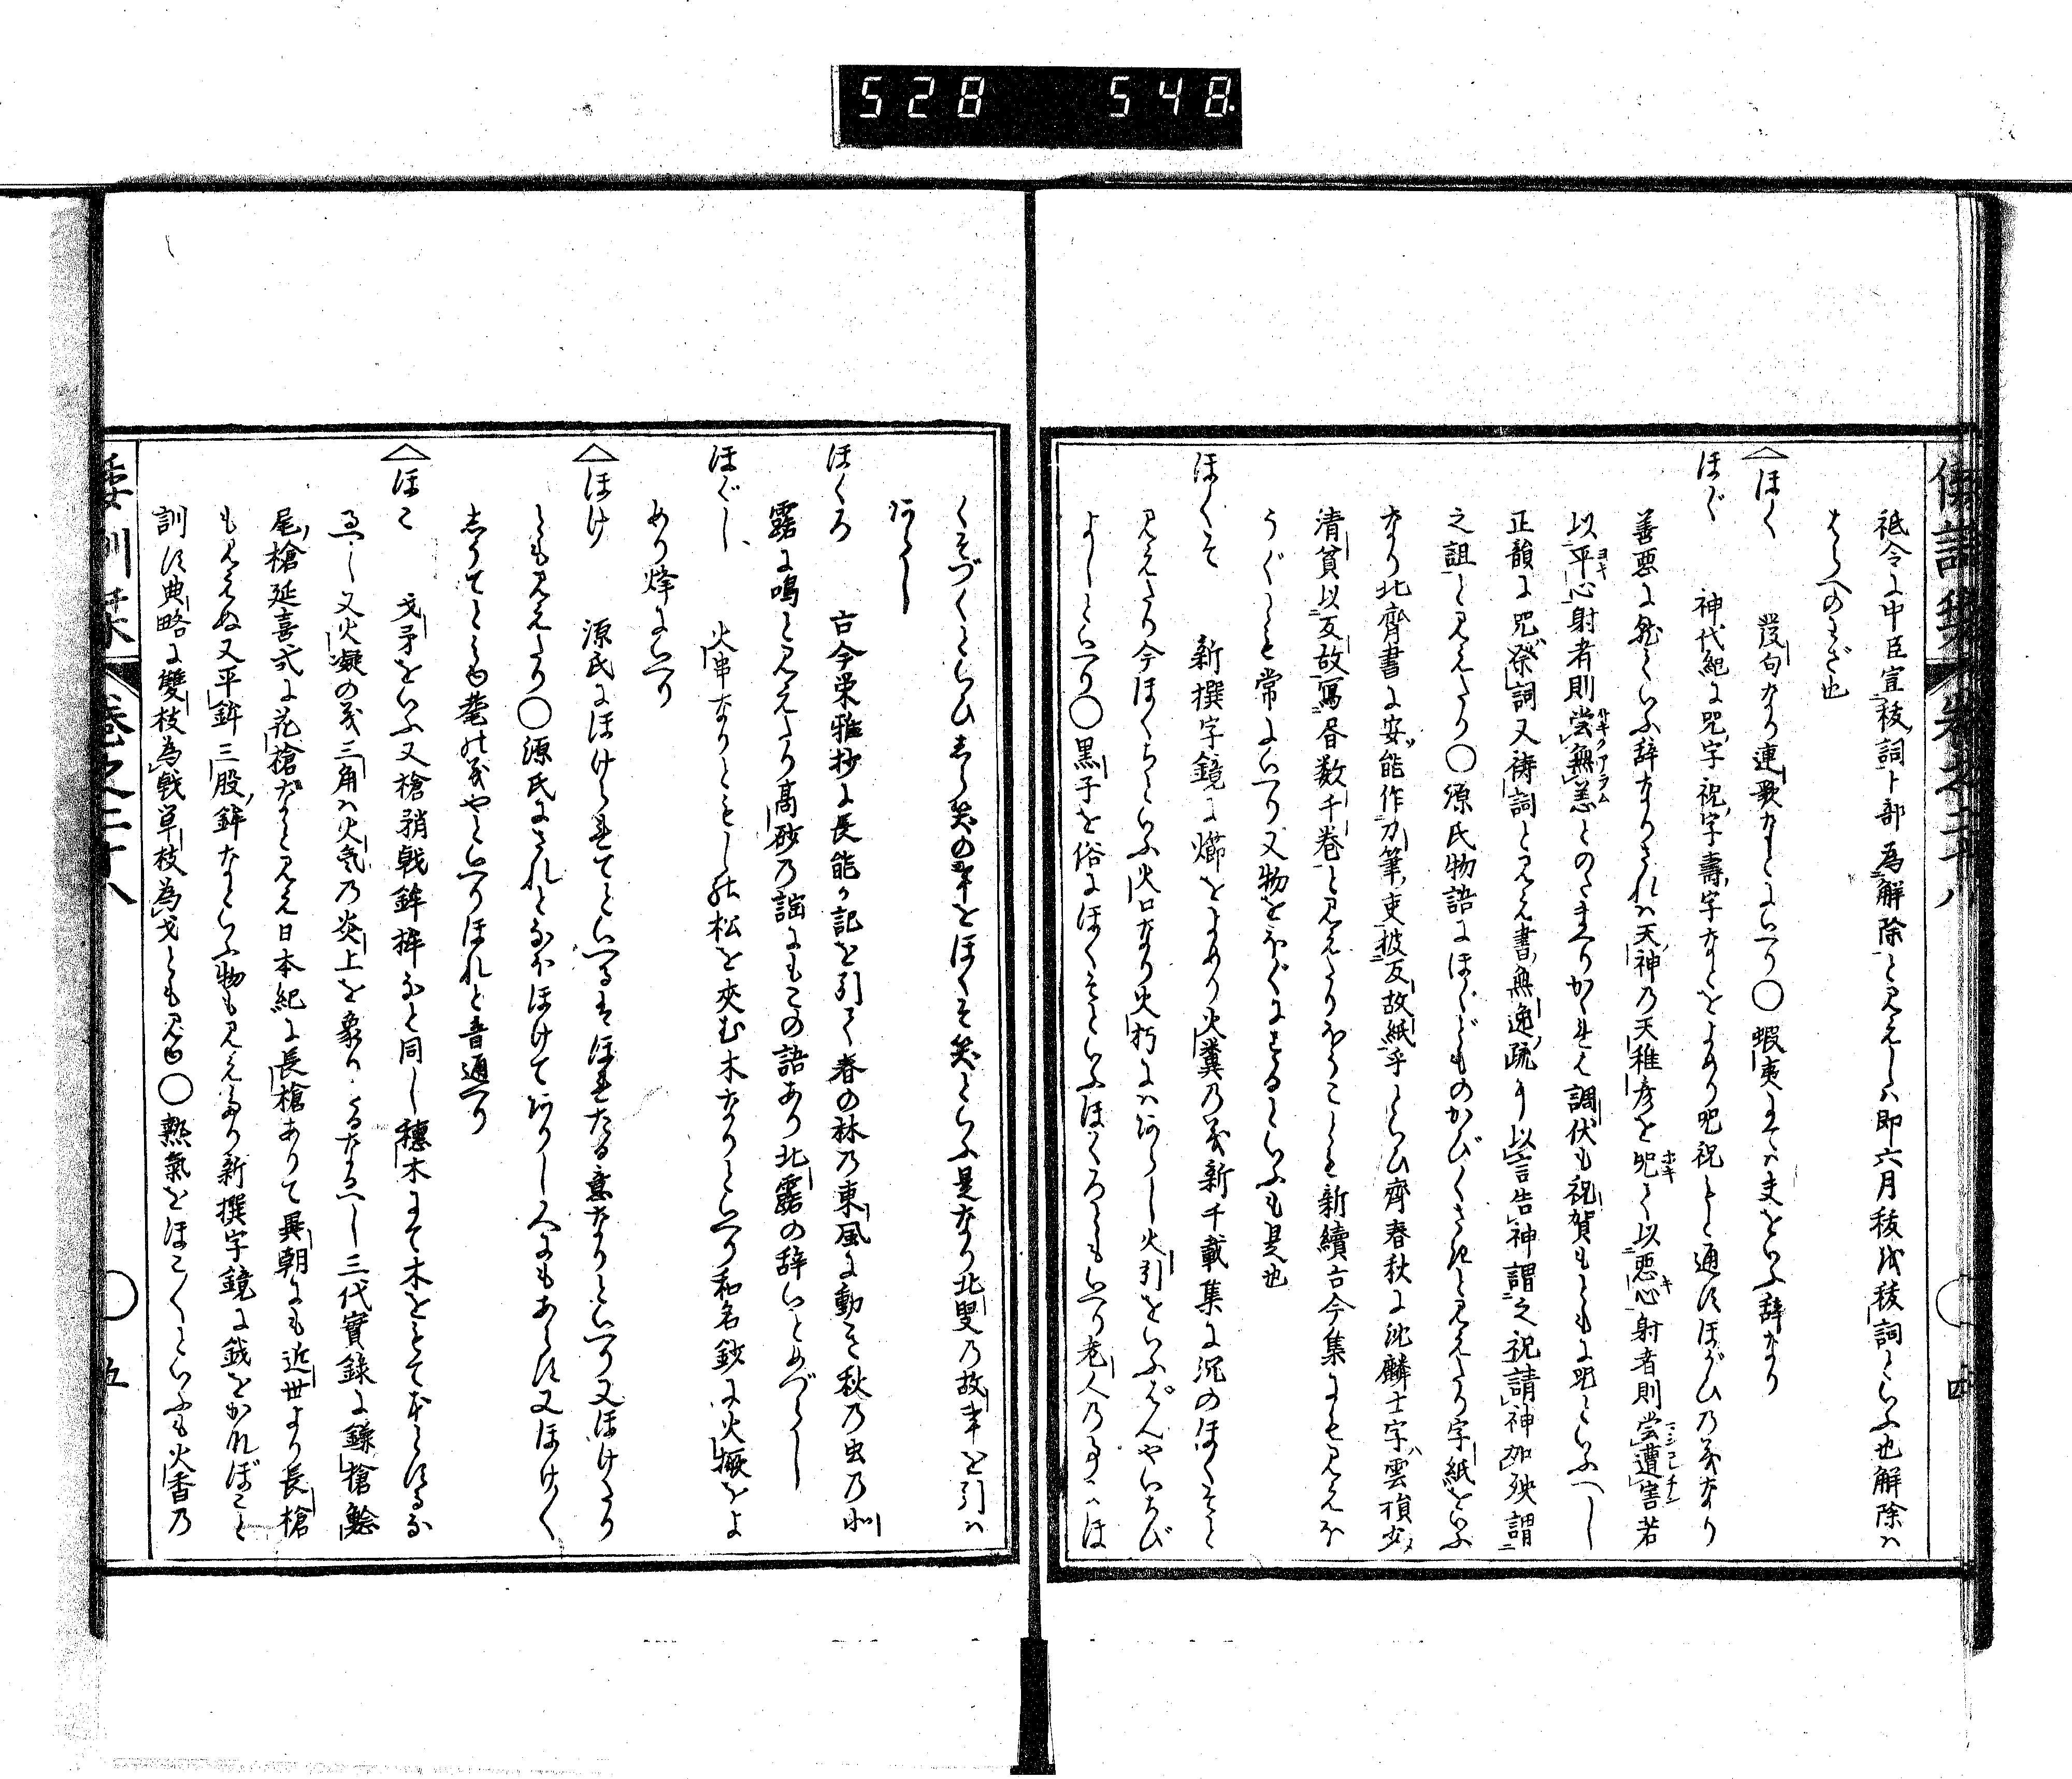 528 548
祇令に中臣宣祓詞卜部為解除と見えしハ即六月祓に祓詞といふ也解除ハ
はらへのわざ也
ほく 發句なり連歌なとにいへり〇蝦夷にてハまをいふ辞なり
ほぐ 神代紀に咒字祝字壽字なとをよめり咒祝もと通ほがひの義なり
善悪に就といふ辞なりされハ天神の天稚彦を咒て以悪心射者則當遭害若
以平心射者則當無恙とのたまへりかくれは調伏も祝賀もともに咒といふへし
正韻に咒祭詞又祷詞と見え書無逸疏に以言告神謂之祝請神加殃謂
之詛と見えたり〇源氏物語にほぐどものかびくさきと見えたり字紙をいふ
なり北齊書に安能作刀筆吏披反故紙乎といひ齊春秋に沈麟士字雲禎少
清貧以反故寫書数千巻と見えたりほうことも新續古今集にも見えほ
うぐとも常にいへり又物をほぐにするといふも是也
ほくそ 新撰字鏡に爝をよめり火糞の義新千載集に沉のほくそと
見えたり今ほくちといふ火口なり火朽にハあらし火引をいふはんやいちび
よしといへり〇黒子を俗にほくそといふほくろともいへり老人の事ハほ
くそづくといひしら笑の事をほくそ笑といふ是なり北叟の故事を引ハ
あらし
ほくろ 古今栄雅抄に長能か記を引て春の林の東風に動き秋の虫の北
露に鳴と見えたり高砂の謡にもこの語あり北露の辞いとめづらし
ほぐし 火串なりともし松を夾む木なりといへり和名鈔に火橛をよ
めり烽にいへり
ほけ 源氏にほけられてといへるはほれたる意なりといへり又ほけたり
とも見えたり〇源氏にされとなほほけてありし人にもあらす又ほけ〱
しうてとも耄の義やといへりほれと音通へり
ほこ 戈矛をいふ又槍矟戟鉾桙なと同し穂木にて木をもて本とするな
るへし又火凝の義三角ハ火気の炎上を象りたるなるへし三代實録に鎌槍鯰
尾槍延喜式に花槍なと見え日本紀に長槍ありて異朝にも近世より長槍
も見えぬ又平鉾三股鉾なといふ物も見えたり新撰字鏡に鉞をかれぼこと
訓す典略に雙枝為戟単枝為戈とも見ゆ〇熱氣をほこ〱といふも火香の
倭訓栞 巻之二十八 四
倭訓栞 巻之二十八 五